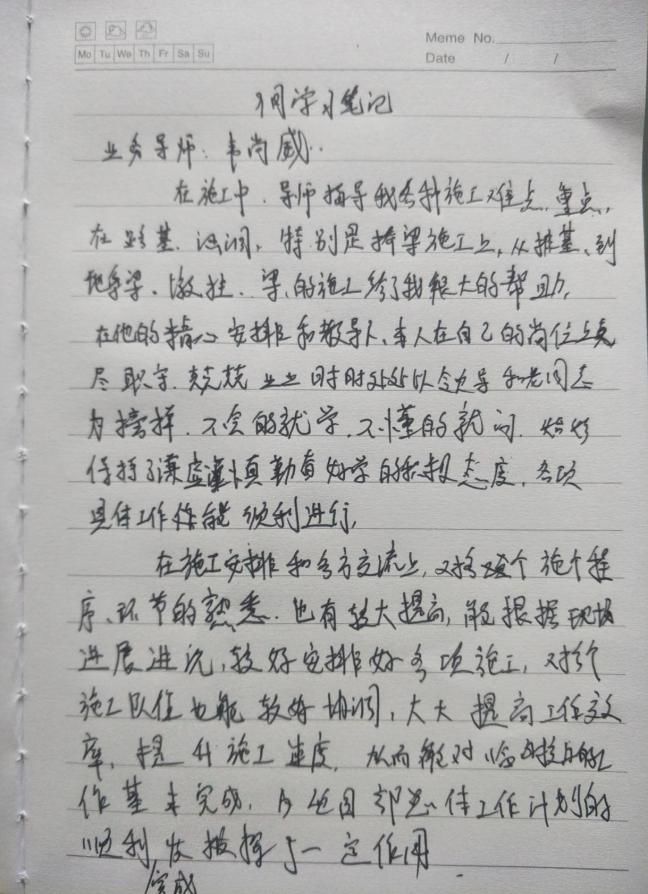 Mo Tu We Th Fr Sa Su
Meme No.
Date / /
3月学习笔记
业务导师：韦尚威.
在施工中，导师指导我各种施工难点、重点，
在路基、涵洞，特别是桥梁施工上，从桩基、到
地系梁、墩柱、梁，的施工给了我很大的帮助，
在他的精心安排和教导下，本人在自己的岗位上克
尽职守，兢兢业业时时处处以领导和老同志
为榜样，不会的就学，不懂的就问，始终
保持了谦虚谨慎勤奋好学的积极态度，各项
具体工作作能顺利进行，
在施工安排和各方交流上，对整个施个程
序、环节的熟悉，也有较大提高，能根据现场
进展进况，较好安排好各项施工，对个
施工队伍也能较好协调，大大提高工作效
率，提升施工速度，从而能对的工
作基本完成，为项目部总体工作计划的
顺利发挥了一定作用
完成